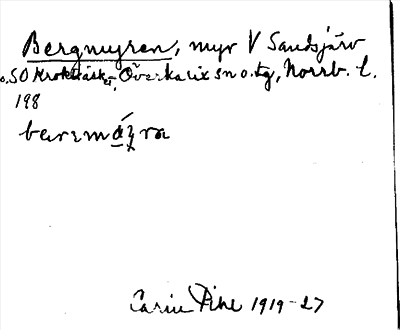 Bergmyren, myr V Sandsjärv
o. SO Krokträsket, Överkalix sn o. tg, Norrb. l.
198
Carin Pihl 1919-27